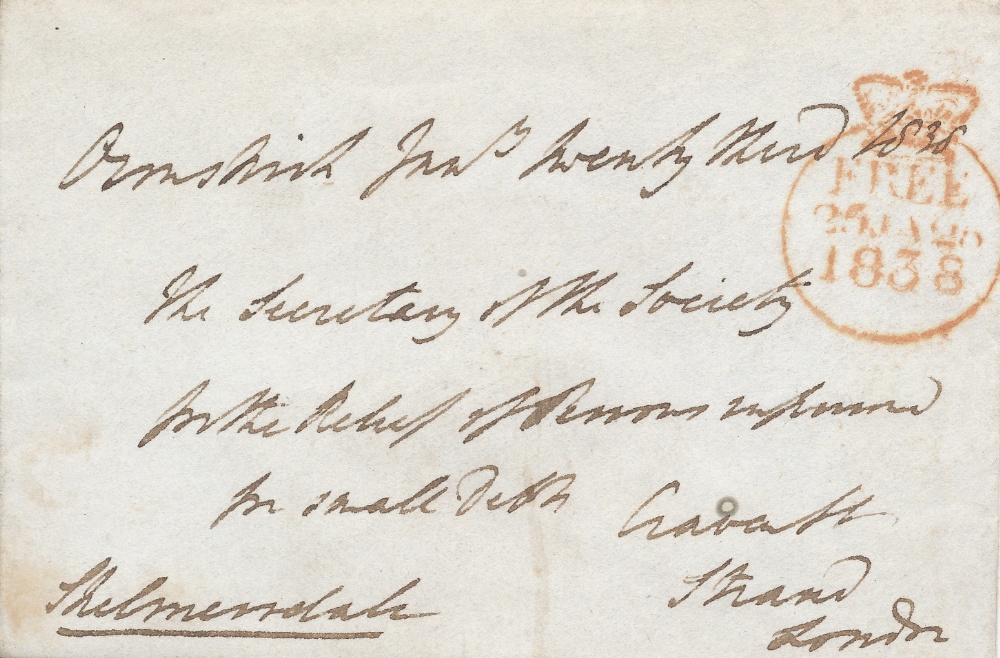 Ormskirk Jany twenty third 1838
FREE
25 JA 25
1838
The Secretary of the Society
for the Relief of Persons imprisoned
for small Debts
Craven St
Strand
London
Skelmersdale